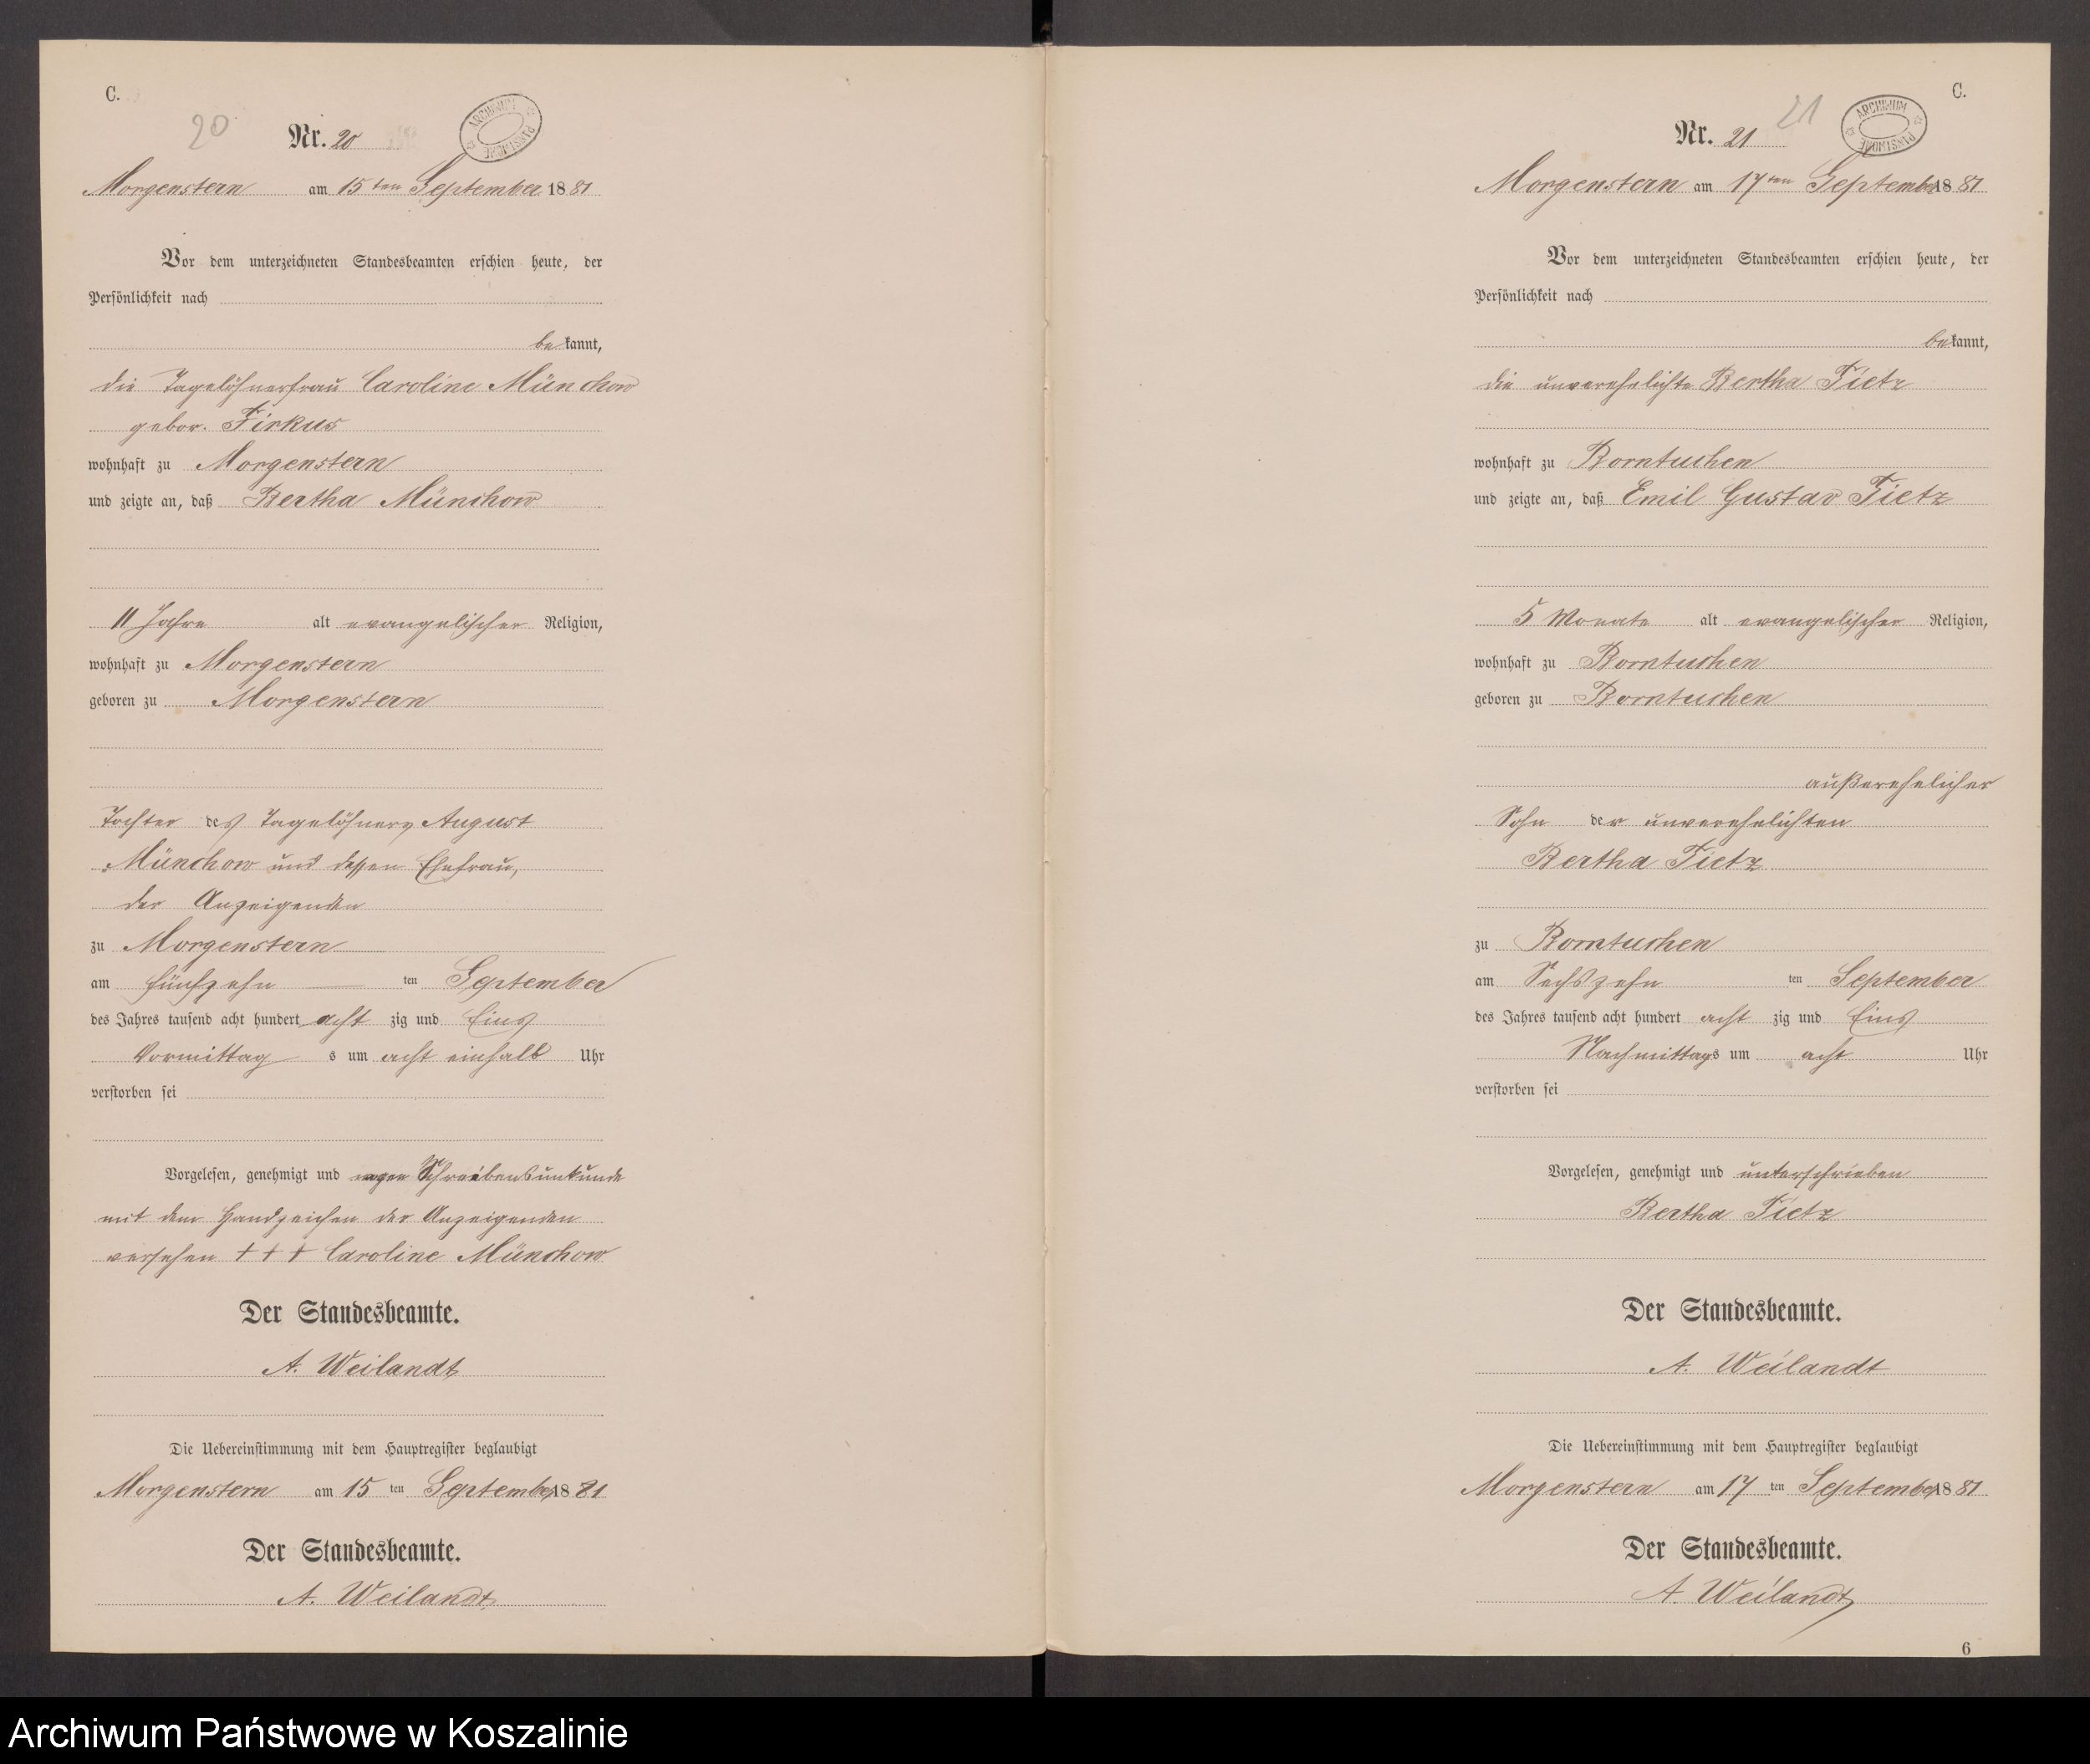 C.
20
Nr. 20
ARCHIWUM PAŃSTWOWE
Morgenstern am 15 ten September 1881
Vor dem unterzeichneten Standesbeamten erschien heute, der
Persönlichkeit nach
bekannt,
die Tagelöhnerfrau Caroline Münchow
gebor. Firkus
wohnhaft zu Morgenstern
und zeigte an, daß Bertha Münchow
11 Jahre alt evangelischer Religion,
wohnhaft zu Morgenstern
geboren zu Morgenstern
Tochter des Tagelöhners August
Münchow und dessen Ehefrau,
der Anzeigenden
zu Morgenstern
am fünfzehn ten September
des Jahres tausend acht hundert acht zig und Eins
Vormittag s um acht einhalb Uhr
verstorben sei
Vorgelesen, genehmigt und wegen Schreibensunkunde
mit dem Handzeichen der Anzeigenden
versehen + + + Caroline Münchow
Der Standesbeamte.
A. Weilandt
Die Uebereinstimmung mit dem Hauptregister beglaubigt
Morgenstern am 15 ten September 1881
Der Standesbeamte.
A. Weilandt
C.
21
Nr. 21
ARCHIWUM PAŃSTWOWE
Morgenstern am 17 ten September 1881
Vor dem unterzeichneten Standesbeamten erschien heute, der
Persönlichkeit nach
bekannt,
die unverehelichte Bertha Tietz
wohnhaft zu Borntuchen
und zeigte an, daß Emil Gustav Tietz
5 Monate alt evangelischer Religion,
wohnhaft zu Borntuchen
geboren zu Borntuchen
außerehelicher
Sohn der unverehelichten
Bertha Tietz
zu Borntuchen
am Sechszehn ten September
des Jahres tausend acht hundert acht zig und Eins
Nachmittags um acht Uhr
verstorben sei
Vorgelesen, genehmigt und unterschrieben
Bertha Tietz
Der Standesbeamte.
A. Weilandt
Die Uebereinstimmung mit dem Hauptregister beglaubigt
Morgenstern am 17 ten September 1881
Der Standesbeamte.
A. Weilandt
6
Archiwum Państwowe w Koszalinie